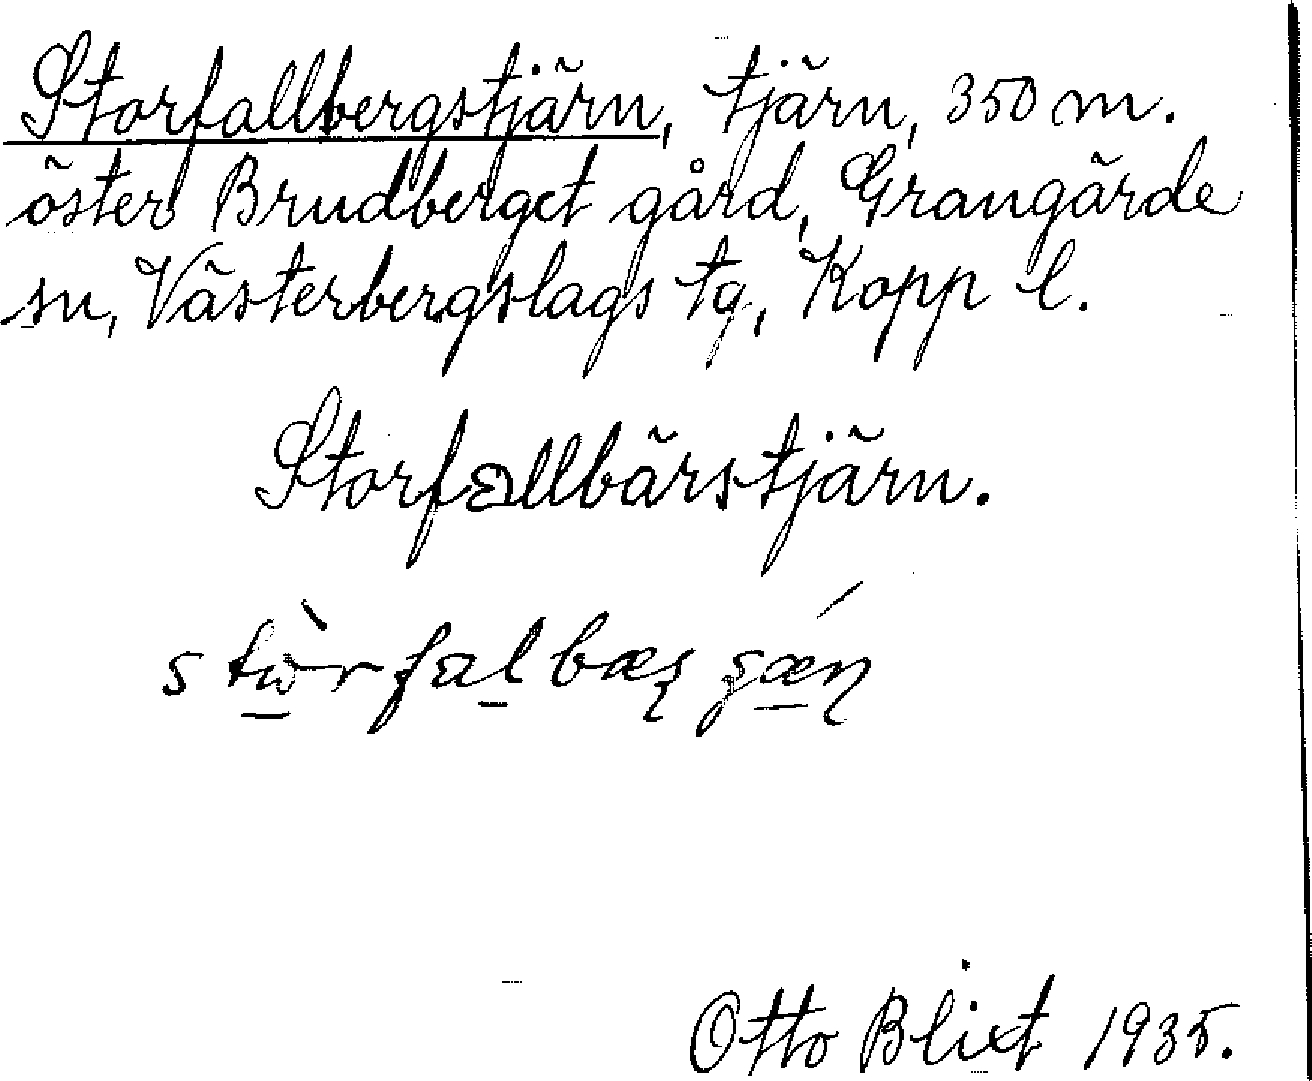 Storfallbergstjärn, tjärn, 350 m.
öster Brudberget gård, Grangärde
sn, Västerbergslags tg, Kopp l.
Storfallbärstjärn.
Otto Blixt 1935.